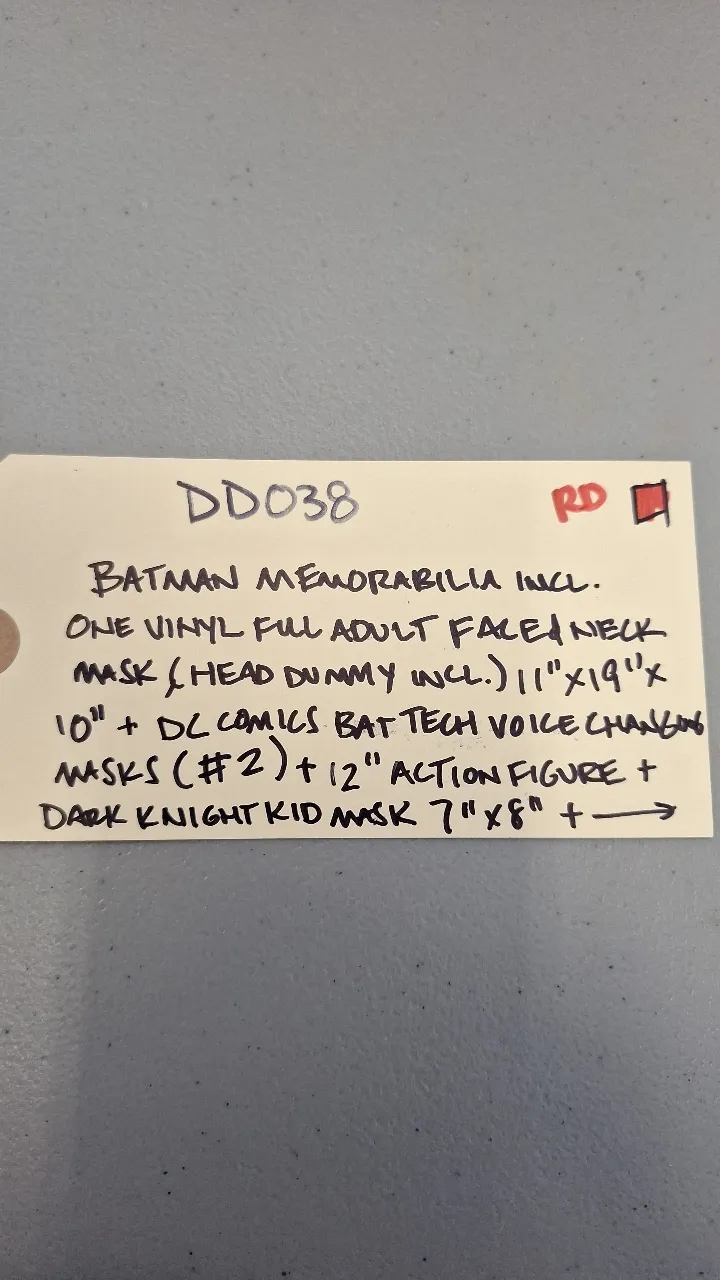 DD038 RD
BATMAN MEMORABILIA INCL.
ONE VINYL FULL ADULT FACE & NECK
MASK (HEAD DUMMY INCL.) 11" X 19" X
10" + DC COMICS BAT TECH VOICE CHANGING
MASKS (#2) + 12" ACTION FIGURE +
DARK KNIGHT KID MASK 7" X 8" + →